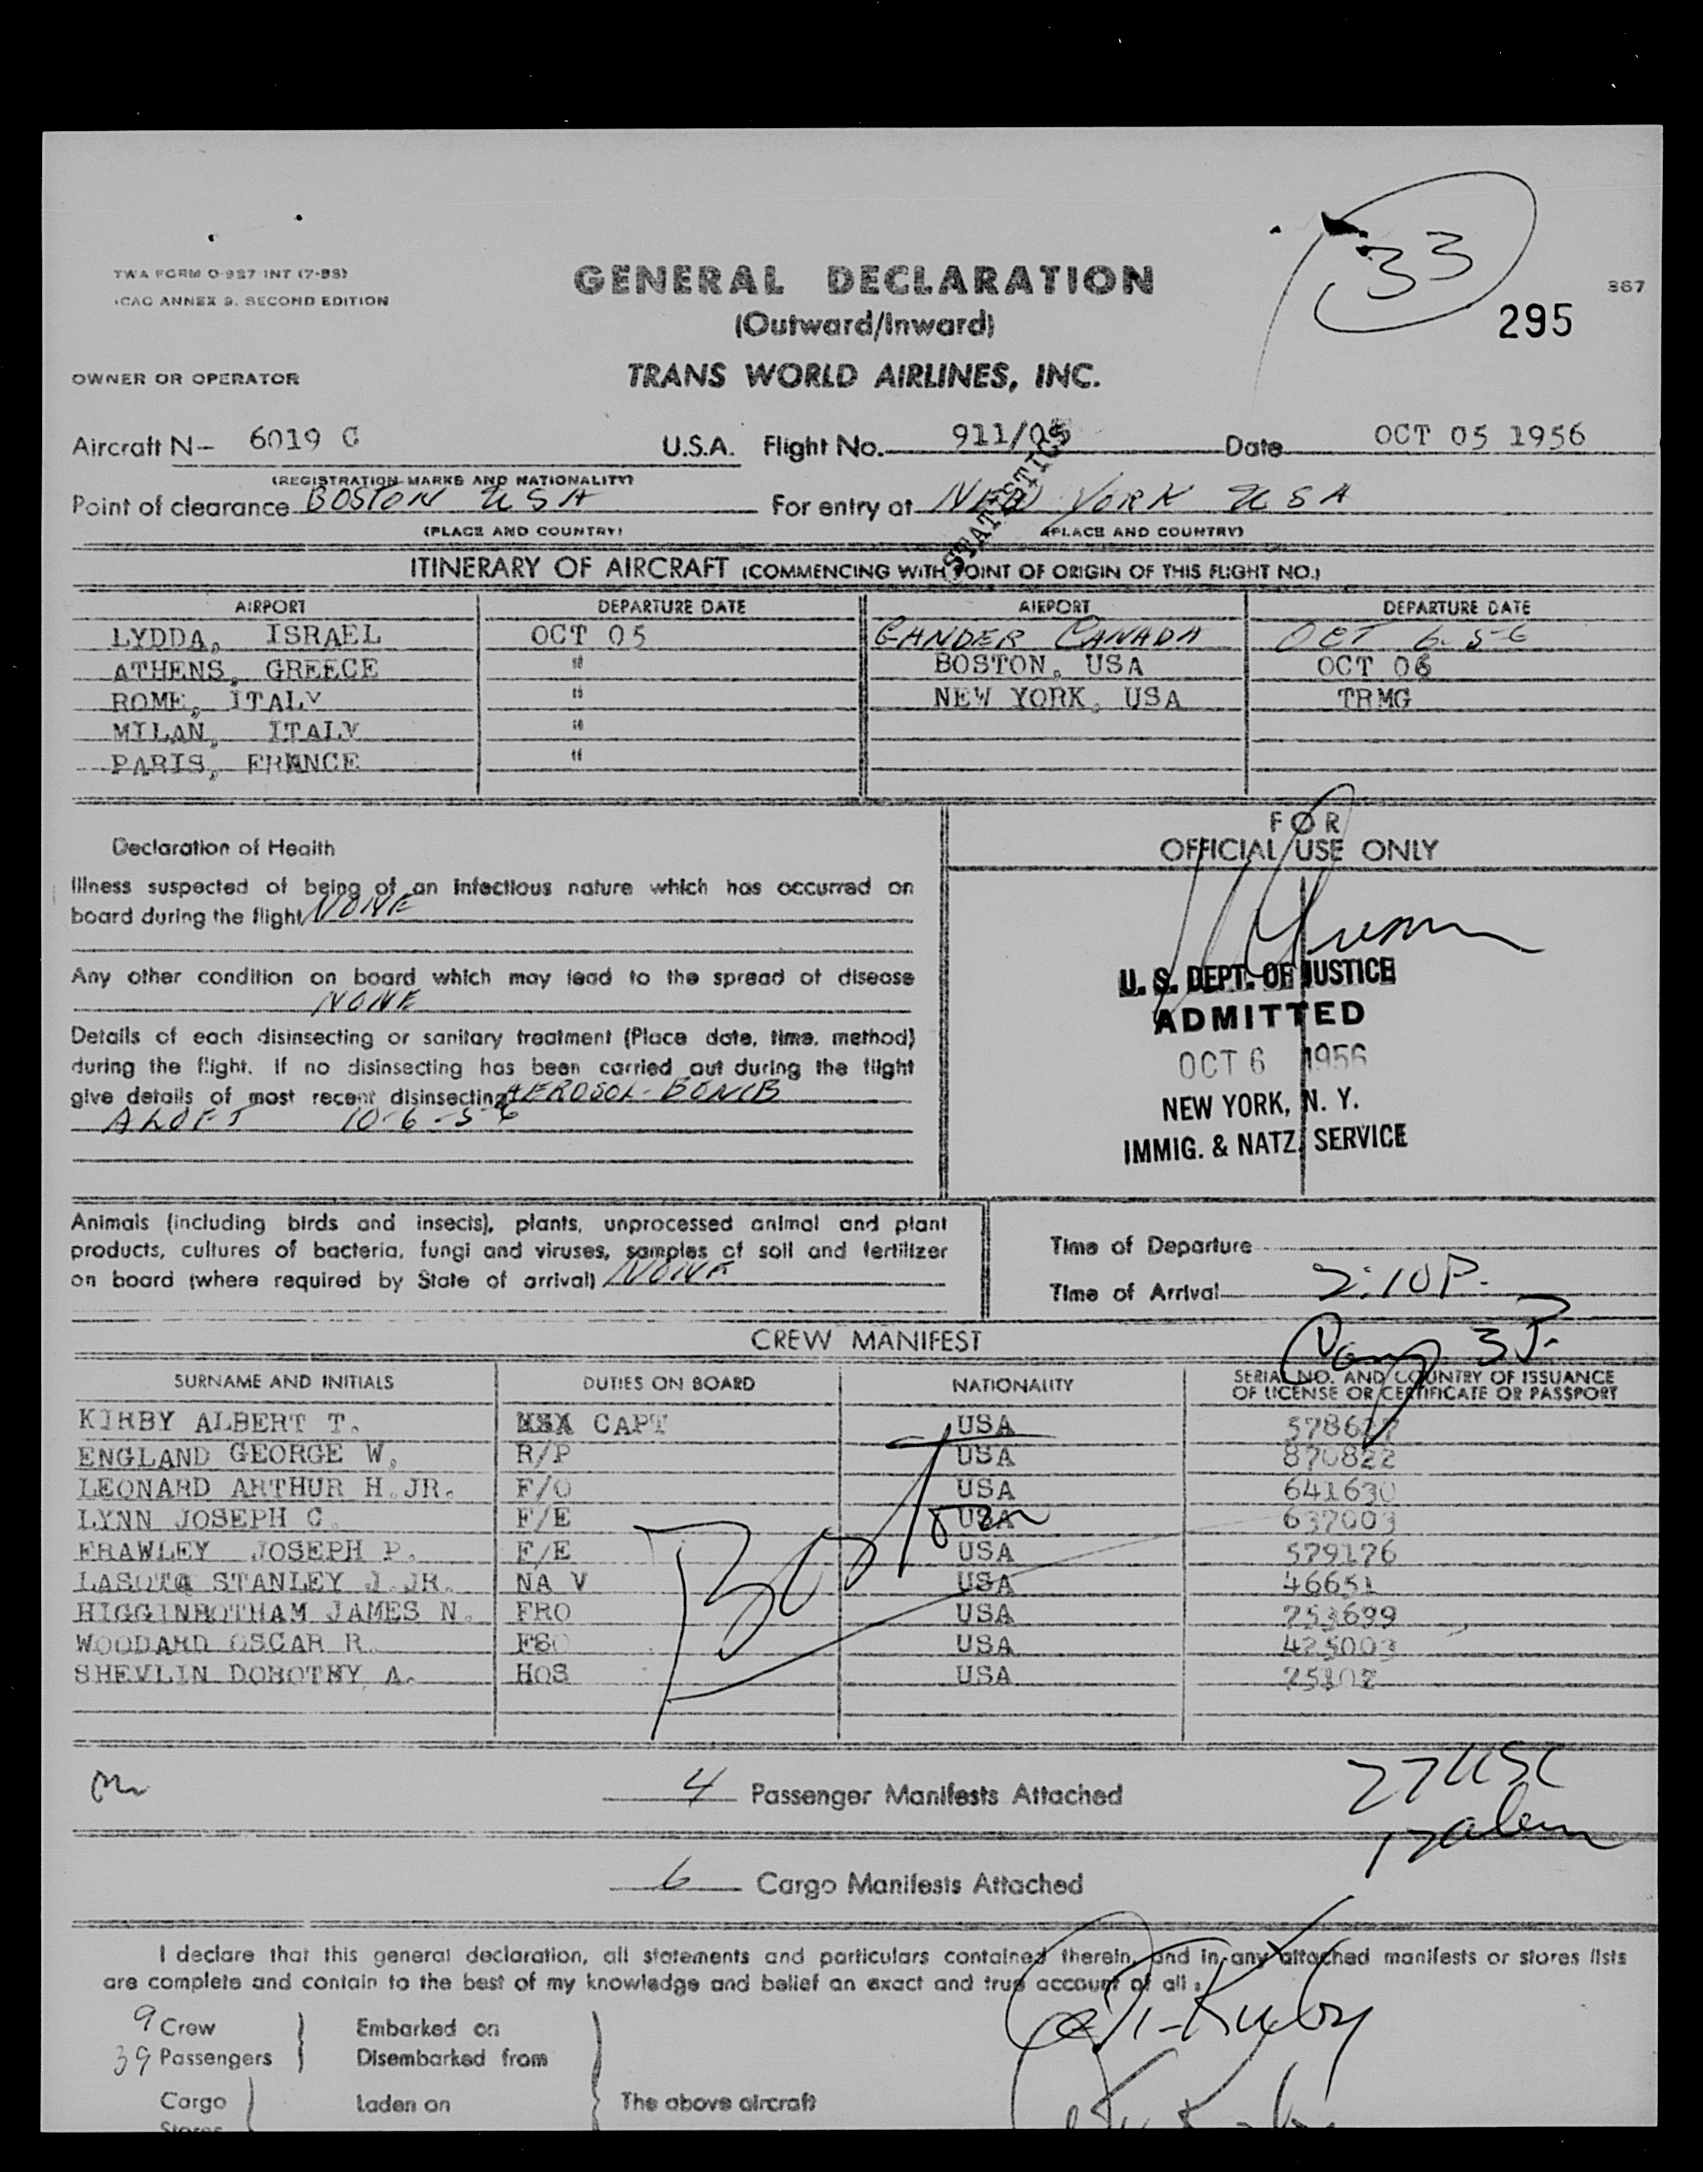 33
TWA FORM O-987 INT (7-55)
ICAO ANNEX 9. SECOND EDITION
GENERAL DECLARATION
367
295
(Outward/Inward)
OWNER OR OPERATOR TRANS WORLD AIRLINES, INC.
Aircraft N- 6019 C U.S.A. Flight No. 911/05 Date OCT 05 1956
(REGISTRATION MARKS AND NATIONALITY)
STATISTICS
Point of clearance BOSTON USA For entry at NEW YORK USA
(PLACE AND COUNTRY) (PLACE AND COUNTRY)
ITINERARY OF AIRCRAFT (COMMENCING WITH POINT OF ORIGIN OF THIS FLIGHT NO.)
AIRPORT DEPARTURE DATE AIRPORT DEPARTURE DATE
LYDDA, ISRAEL OCT 05 GANDER CANADA OCT 6-56
ATHENS, GREECE " BOSTON, USA OCT 06
ROME, ITALY " NEW YORK, USA TRMG
MILAN, ITALY "
PARIS, FRANCE "
Declaration of Health
Illness suspected of being of an infectious nature which has occurred on
board during the flight NONE
Any other condition on board which may lead to the spread of disease
NONE
Details of each disinsecting or sanitary treatment (Place date, time, method)
during the flight. If no disinsecting has been carried out during the flight
give details of most recent disinsecting AEROSOL-BOMB
ALOFT 10-6-56
FOR
OFFICIAL USE ONLY
U. S. DEPT. OF JUSTICE
ADMITTED
OCT 6 1956
NEW YORK, N. Y.
IMMIG. & NATZ. SERVICE
Animals (including birds and insects), plants, unprocessed animal and plant
products, cultures of bacteria, fungi and viruses, samples of soil and fertilizer
on board (where required by State of arrival) NONE
Time of Departure
Time of Arrival 2:10P.
CREW MANIFEST
SURNAME AND INITIALS DUTIES ON BOARD NATIONALITY SERIAL NO. AND COUNTRY OF ISSUANCE
OF LICENSE OR CERTIFICATE OR PASSPORT
KIRBY ALBERT T. CAPT USA
ENGLAND GEORGE W. R/P USA 870822
LEONARD ARTHUR H.JR. F/O USA 641630
LYNN JOSEPH C. F/E USA 637003
FRAWLEY JOSEPH P. F/E USA 579176
LASOTA STANLEY J.JR. NA V USA 46651
HIGGINBOTHAM JAMES N. FRO USA 253699
WOODARD OSCAR R. FSO USA 425003
SHEVLIN DOROTHY A. HOS USA 25102
Boston
4 Passenger Manifests Attached
27 USC
6 Cargo Manifests Attached
I declare that this general declaration, all statements and particulars contained therein, and in any attached manifests or stores lists
are complete and contain to the best of my knowledge and belief an exact and true account of all:
9 Crew Embarked on
39 Passengers Disembarked from
Cargo Laden on The above aircraft
Stores
A.T. Kirby